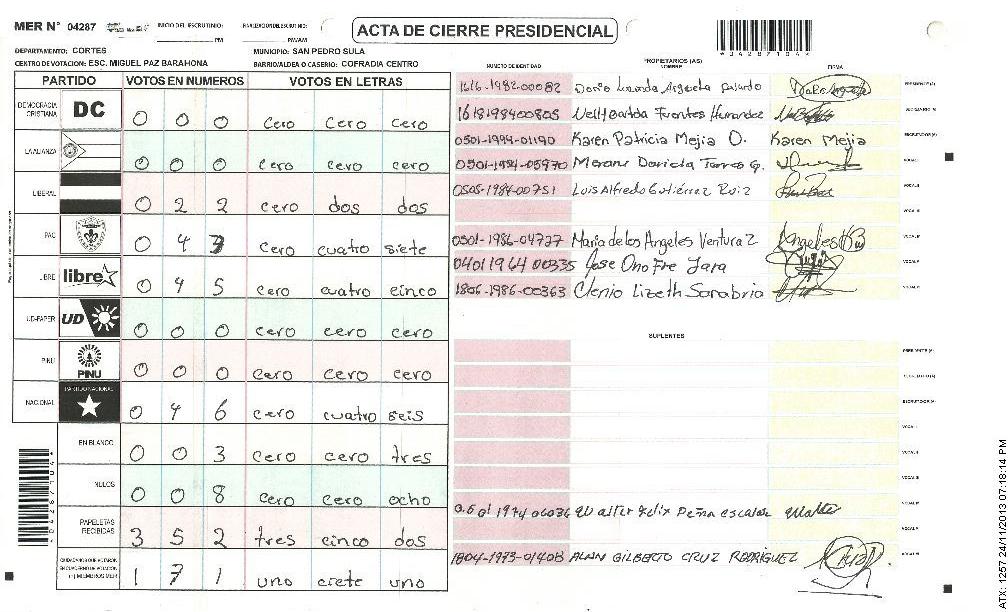 MER N° 04287
INICIO DEL ESCRUTINIO:
PM
PM/AM
ACTA DE CIERRE PRESIDENCIAL
*04287104*
DEPARTAMENTO: CORTES
MUNICIPIO: SAN PEDRO SULA
CENTRO DE VOTACION: ESC. MIGUEL PAZ BARAHONA
BARRIO/ALDEA O CASERIO: COFRADIA CENTRO
PARTIDO VOTOS EN NUMEROS VOTOS EN LETRAS
DEMOCRACIA CRISTIANA DC 0 0 0 cero cero cero
LA ALIANZA 0 0 0 cero cero cero
LIBERAL 0 2 2 cero dos dos
PAC 0 4 7 cero cuatro siete
LIBRE libre 0 4 5 cero cuatro cinco
UD-FAPER UD 0 0 0 cero cero cero
PINU PINU 0 0 0 cero cero cero
NACIONAL PARTIDO NACIONAL 0 4 6 cero cuatro seis
EN BLANCO 0 0 3 cero cero tres
NULOS 0 0 8 cero cero ocho
PAPELETAS RECIBIDAS 3 5 2 tres cinco dos
CIUDADANOS QUE VOTARON EN CUADERNO DE VOTACION (+) MIEMBROS MER 1 7 1 uno ciete uno
PROPIETARIOS (AS)
NUMERO DE IDENTIDAD NOMBRE FIRMA
1616-1982-00082 PRESIDENTE(A)
1618198400805 Fuentes Hernandez
0501-1994-01190 Karen Patricia Mejia O. Karen Mejia ESCRUTADOR(A)
0501-1984-05970 VOCAL I
0505-1984-00751 Luis Alfredo Gutiérrez Ruiz VOCAL II
VOCAL III
0501-1986-04727 Maria de los Angeles Ventura Z VOCAL IV
0401 1964 00335 Jose Onofre Jara VOCAL V
1806-1986-00363 Clenio Lizeth Sanabria VOCAL VI
SUPLENTES
PRESIDENTE (A)
SECRETARIO (A)
ESCRUTADOR (A)
VOCAL I
VOCAL II
VOCAL III
Walter Felix Peña escalar Walter VOCAL IV
VOCAL V
1804-1973-01408 ALAN GILBERTO CRUZ RODRIGUEZ Cruz VOCAL VI
*04287104*
ATX: 1257 24/11/2013 07:18:14 PM